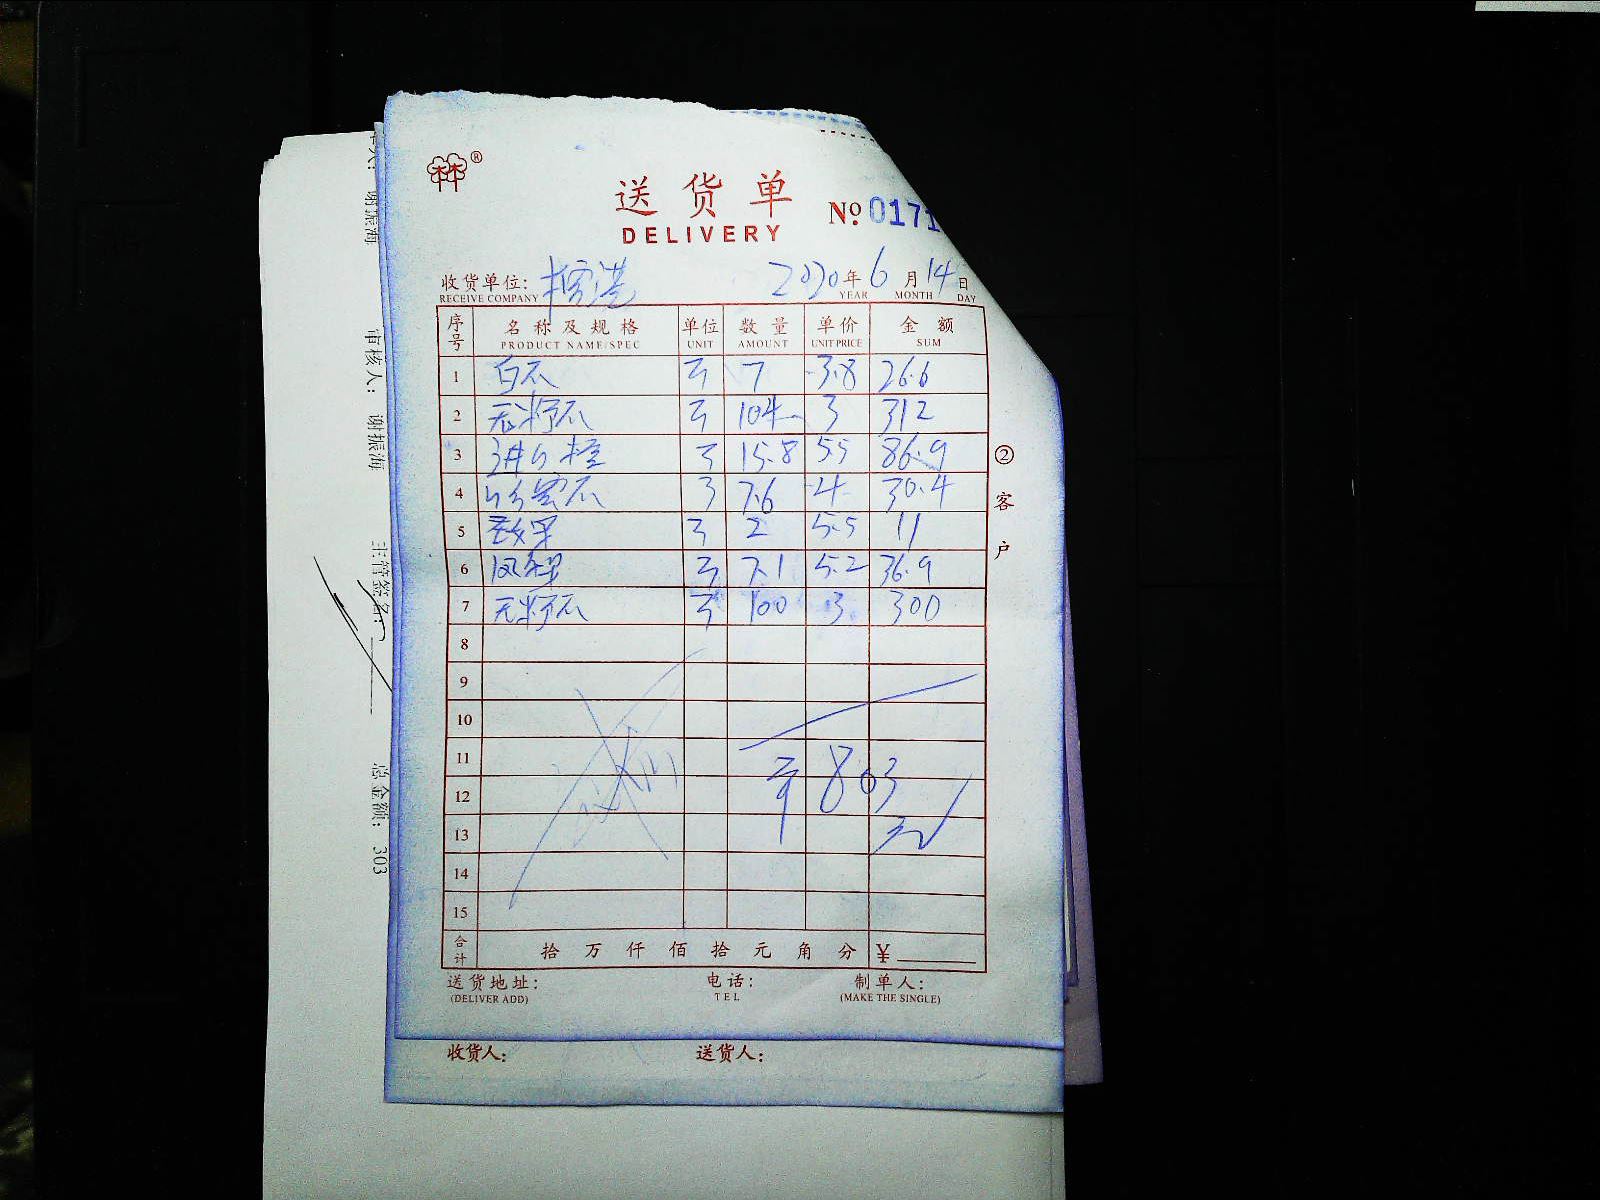 ®
送货单
DELIVERY
№ 0171
收货单位: 2020年6月14日
RECEIVE COMPANY YEAR MONTH DAY
序号 名称及规格 单位 数量 单价 金额
PRODUCT NAME/SPEC UNIT AMOUNT UNIT PRICE SUM
1 白瓜 7 3.8 26.6
2 无籽瓜 104 3 312
3 15.8 5.5 86.9
4 瓜 7.6 4 30.4
5 2 5.5 11
6 凤梨 7.1 5.2 36.9
7 无籽瓜 100 3 300
8
9
10
11
12
13
14
15
803元
合计 拾万仟佰拾元角分 ¥
送货地址: 电话: 制单人:
(DELIVER ADD) TEL (MAKE THE SINGLE)
收货人: 送货人:
②客户
谢振海
审核人: 谢振海
主管签名:
总金额: 303